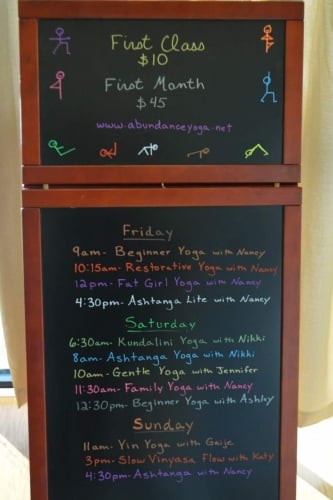 First Class
$10
First Month
$45
www.abundanceyoga.net
Friday
9am- Beginner Yoga with Nancy
10:15am- Restorative Yoga with Nancy
12pm- Fat Girl Yoga with Nancy
4:30pm- Ashtanga Lite with Nancy
Saturday
6:30am- Kundalini Yoga with Nikki
8am- Ashtanga Yoga with Nikki
10am- Gentle Yoga with Jennifer
11:30am- Family Yoga with Nancy
12:30pm- Beginner Yoga with Ashley
Sunday
11am- Yin Yoga with Gaije
3pm- Slow Vinyasa Flow with Katy
4:30pm- Ashtanga with Nancy